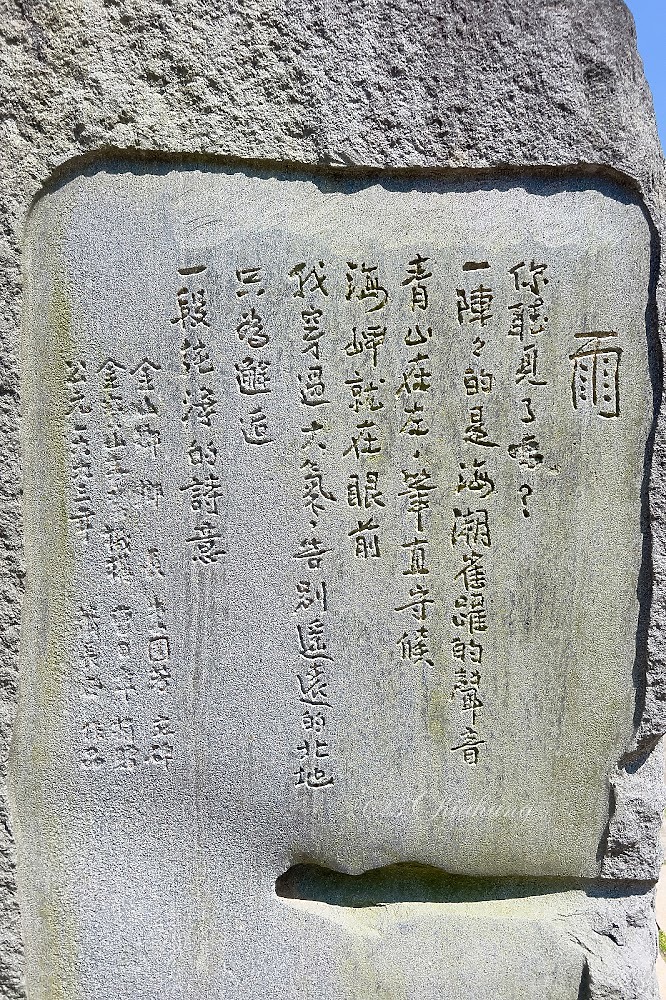 雨
你聽見了嗎？
一陣々的是海潮雀躍的聲音
青山在左，筆直守候
海岬就在眼前
我穿過大氣，告別遙遠的北地
只為邂逅
一段純淨的詩意
金山鄉鄉長 立碑
金山
公元 年
Chethang